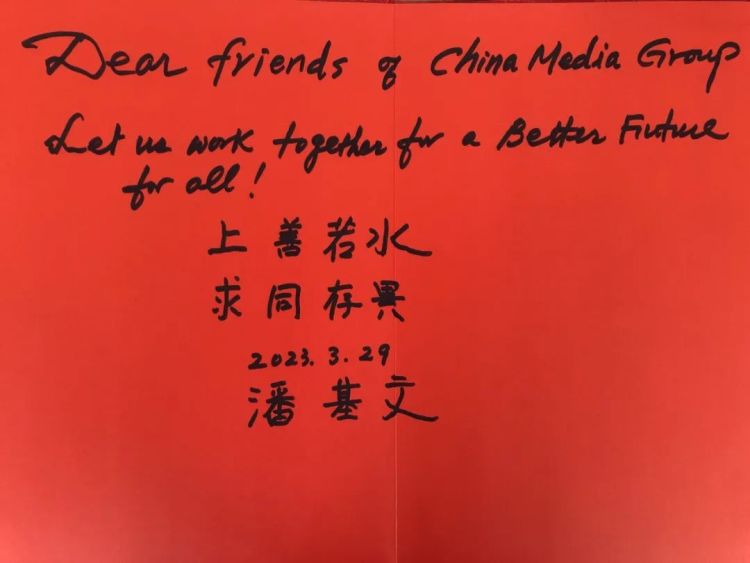 Dear friends of China Media Group
Let us work together for a Better Future
for all!
上善若水
求同存異
2023.3.29
潘基文